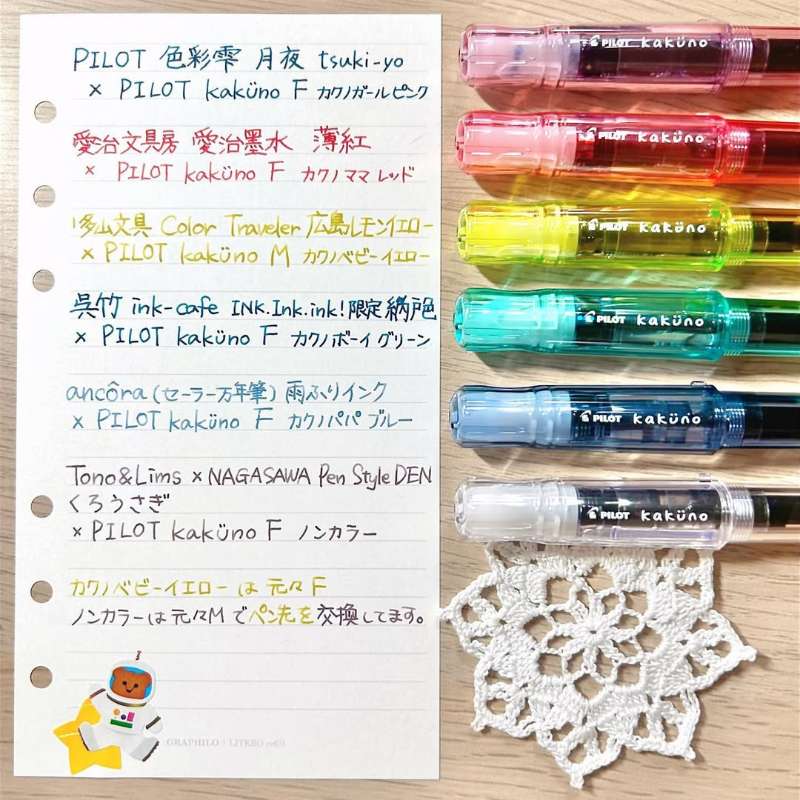 PILOT 色彩雫 月夜 tsuki-yo
× PILOT kaküno F カクノガールピンク
愛治文具房 愛治墨水 薄紅
× PILOT kaküno F カクノママレッド
多山文具 Color Traveler 広島レモンイエロー
× PILOT kaküno M カクノベビーイエロー
呉竹 ink-cafe INK.Ink.ink!限定 納戸色
× PILOT kaküno F カクノボーイグリーン
ancôra (セーラー万年筆) 雨ふりインク
× PILOT kaküno F カクノパパブルー
Tono&Lims × NAGASAWA Pen Style DEN
くろうさぎ
× PILOT kaküno F ノンカラー
カクノベビーイエローは元々F
ノンカラーは元々Mでペン先を交換してます。
GRAPHILO | LITERO
PILOT kaküno
PILOT kaküno
PILOT kaküno
PILOT kaküno
PILOT kaküno
PILOT kaküno